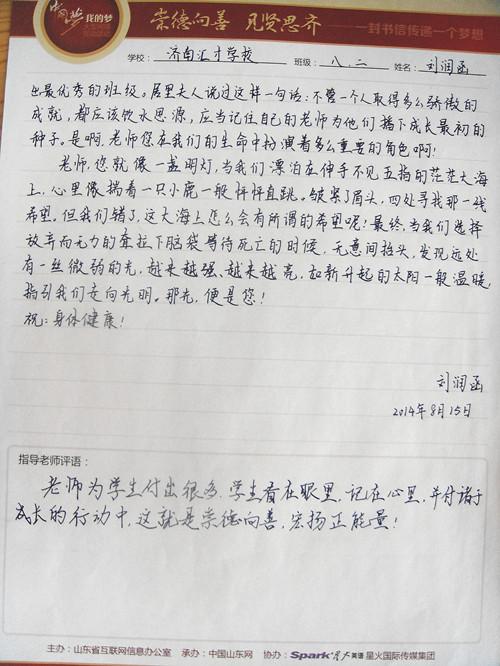 中国梦 我的梦
崇德向善 见贤思齐
一封书信传递一个梦想
学校：济南汇才学校 班级：八、二 姓名：刘润函
出最优秀的班级。居里夫人说过这样一句话：不管一个人取得多么骄傲的
成就，都应该饮水思源，应当记住自己的老师为他们播下成长最初的
种子。是啊，老师您在我们的生命中扮演着多么重要的角色啊！
老师，您就像一盏明灯，当我们漂泊在伸手不见五指的茫茫大海
上，心里像揣着一只小鹿一般怦怦直跳。皱紧了眉头，四处寻找那一线
希望。但我们错了，这大海上怎么会有所谓的希望呢！最终，当我们选择
放弃而无力的牵拉下脑袋等待死亡的时候，无意间抬头，发现远处
有一丝微弱的光，越来越强、越来越亮，如新升起的太阳一般温暖，
指引我们走向光明。那光，便是您！
祝：身体健康！
刘润函
2014年8月15日
指导老师评语：
老师为学生付出很多，学生看在眼里，记在心里，并付诸于
成长的行动中，这就是崇德向善，宏扬正能量！
主办：山东省互联网信息办公室 承办：中国山东网 协办：Spark星火英语 星火国际传媒集团